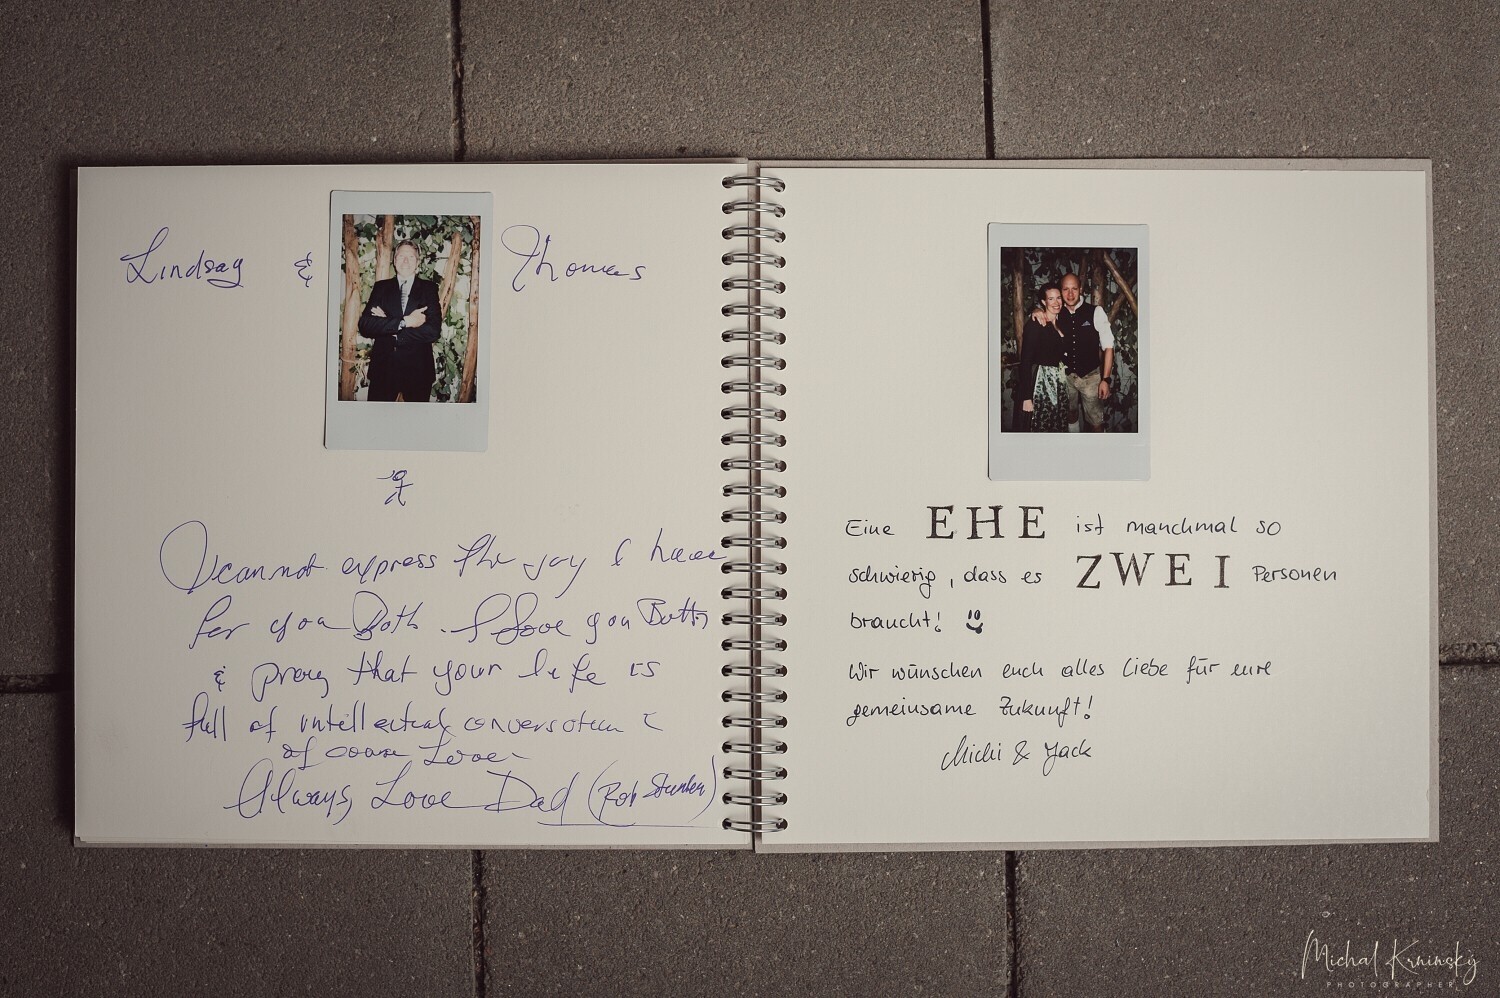 Lindsay & Thomas
I cannot express the joy I have
for you Both. I Love you Both
& pray that your life is
full of intellectual conversation &
of course Love
Always, Love Dad (Rob
Eine EHE ist manchmal so
schwierig, dass es ZWEI Personen
braucht!
Wir wünschen euch alles Liebe für eure
gemeinsame Zukunft!
Michi & Jack
Michal Krninský
PHOTOGRAPHER